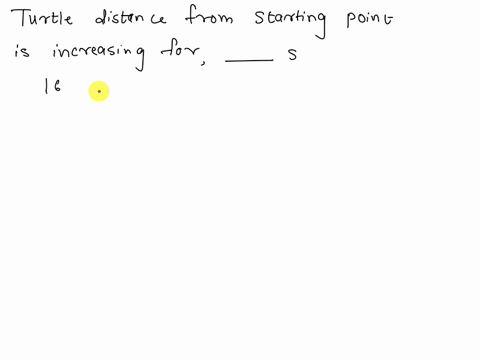 Turtle distance from starting point
is increasing for, ____ s
16